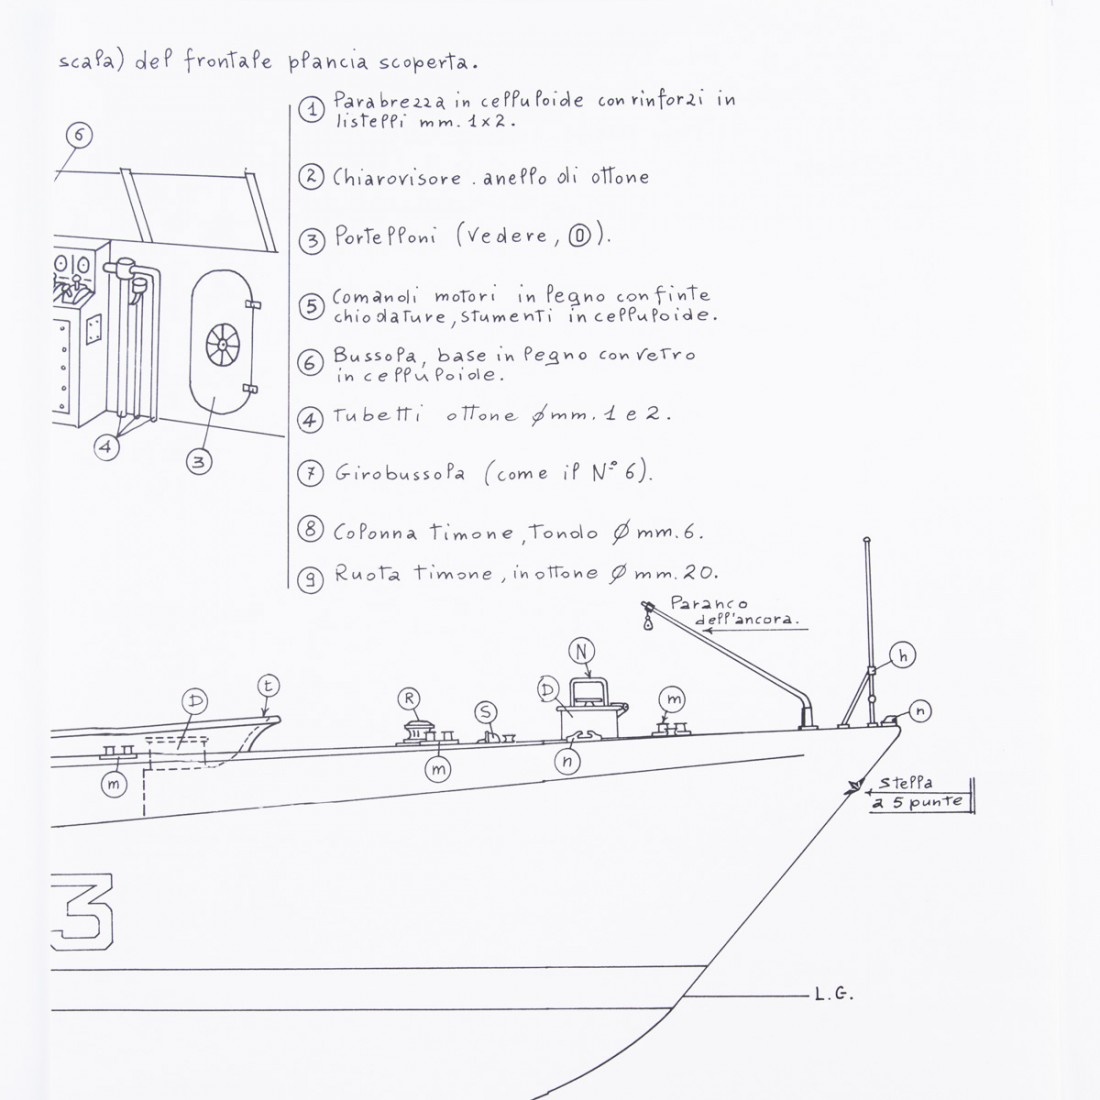 scala) del frontale plancia scoperta.
1 Parabrezza in celluloide con rinforzi in
listelli mm. 1x2.
6
2 Chiarovisore. anello di ottone
3 Portelloni (vedere, O).
5 Comandi motori in legno con finte
chiodature, stumenti in celluloide.
6 Bussola, base in legno con vetro
in celluloide.
4 Tubetti ottone ømm. 1 e 2.
4
3
7 Girobussola (come il N° 6).
8 Colonna timone, Tondo ø mm. 6.
9 Ruota timone, in ottone ø mm. 20.
Paranco
dell'ancora.
N
h
D
t
R
S
D
m
n
m
m
n
stella
a 5 punte
3
L.G.